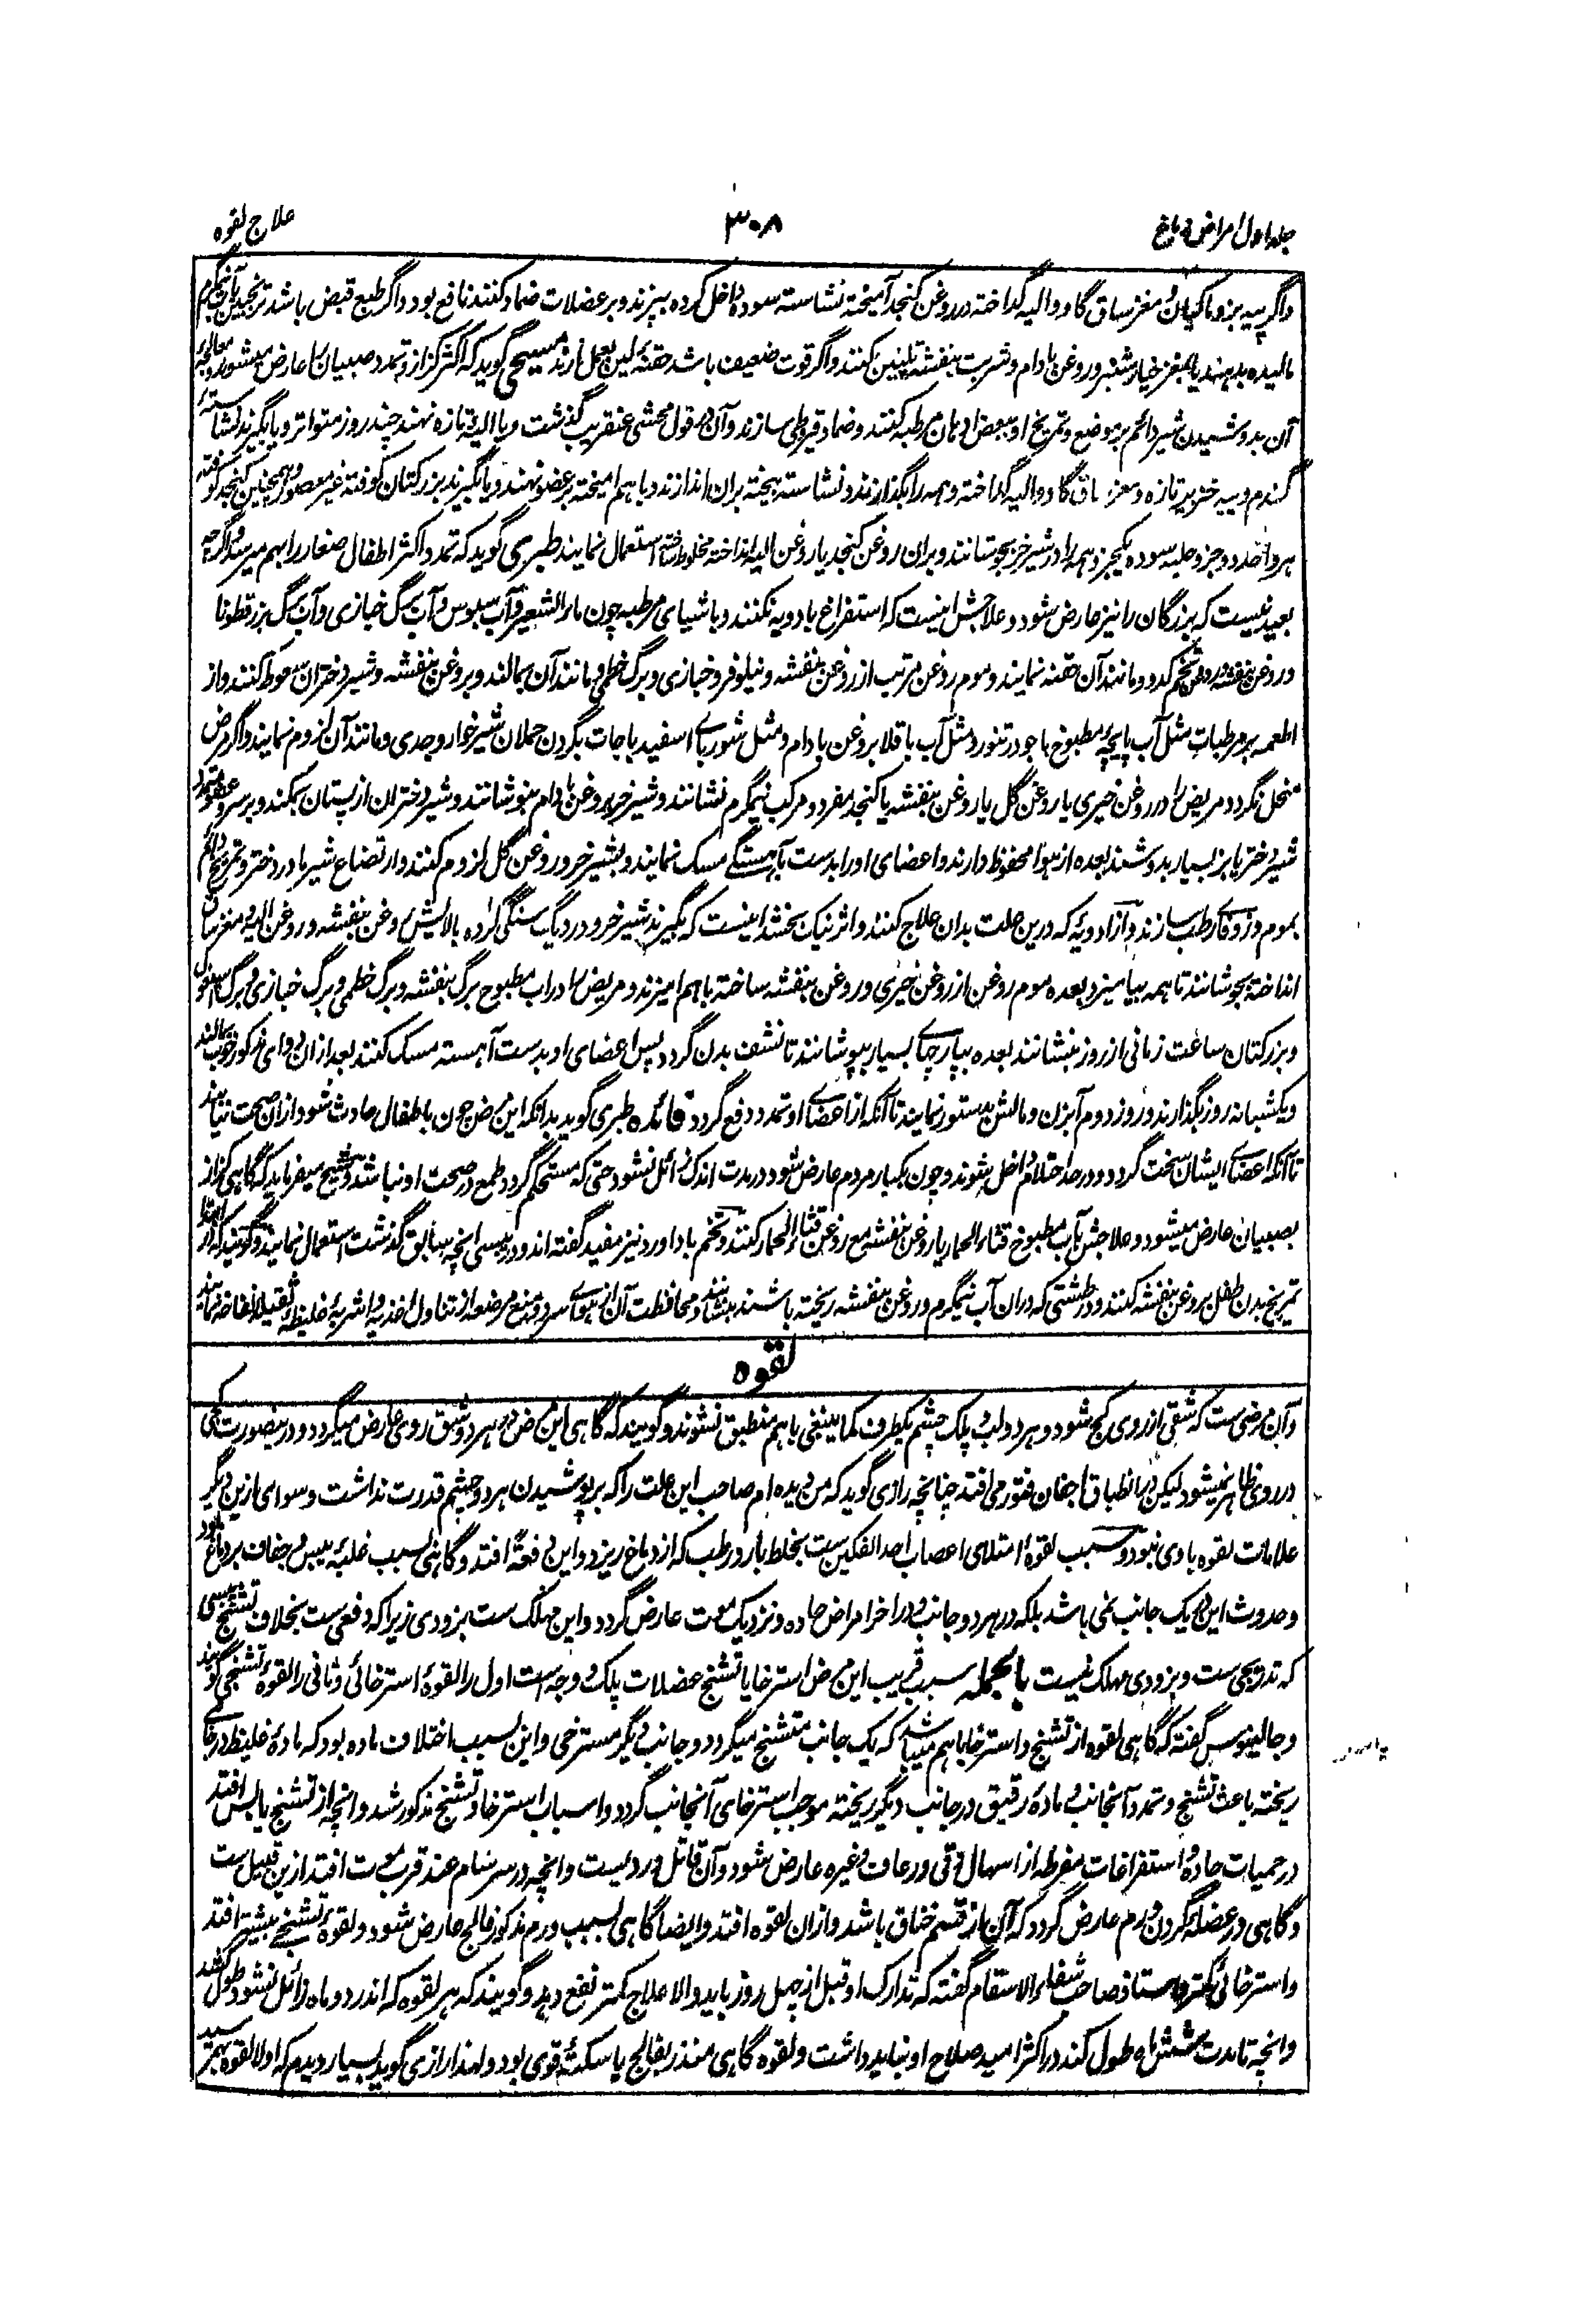 جلد اول امراض دماغ
۳۰۸
علاج لقوه
واگر پیه بز و ماکیان و مغز ساق گاو و الیه گداخته در روغن کنجد آمیخته نشاسته سوده داخل کرده بپزند و بر عضلات ضماد کنند نافع بود و اگر طبع قبض باشد ترنجبین بآب نیمگرم
مالیده بدهند یا بمغز خیارشنبر و روغن بادام و شربت بنفشه تلیین کنند و اگر قوت ضعیف باشد حقنۀ لین بعمل آرند مسیحی گوید که اکثر کزاز و تمدد صبیان را عارض میشود و معالجۀ
آن بدوشیدن شیر دائم بر موضع و تمریخ او ببعض ادهان مرطبه کنند و ضماد قیروطی سازند و آن در قول محشی عنقریب گذشت و یا الیۀ تازه نهند چند روز متواتر و یا بگیرند نشاستۀ
گندم و پیه خنزیر تازه و مغز ساق گاو و الیه گداخته و همه را بگدازند و نشاسته بیخته بران اندازند و باهم آمیخته بر عضو نهند و یا بگیرند بزر کتان کوفته غیر معصور و همچنین کنجد کوفته
هر واحد دو جزو حلبه سوده یکجزو همه را در شیر خر بجوشانند و بران روغن کنجد یا روغن الیه انداخته مخلوط ساخته استعمال نمایند طبری گوید که تمدد اکثر اطفال صغار را بهم میرسد و اگرچه
بعید نیست که بزرگان را نیز عارض شود و علاجش اینست که استفراغ بادویه نکنند و باشیای مرطبه چون ماء الشعیر و آب سبوس و آب برگ خبازی و آب برگ بزرقطونا
و روغن بنفشه و روغن تخم کدو و مانند آن حقنه نمایند و موم روغن مرتب از روغن بنفشه و نیلوفر و خبازی و برگ خطمی و مانند آن بمالند و بروغن بنفشه و شیر دختران سعوط کنند و از
اطعمه بر مرطبات مثل آب پایچه مطبوخ با جو در تنور و مثل آب باقلا بروغن بادام و مثل شوربای اسفیدباجات بگردن حملان شیرخوار و جدی و مانند آن لزوم نمایند و اگر مرض
منحل نگردد مریض را در روغن خیری یا روغن گل یا روغن بنفشه یا کنجد مفرد و مرکب نیمگرم نشانند و شیر خر بروغن بادام بنوشانند و شیر دختران از پستان بمکند و بر سر و عضو متمدد
شیر دختر یا بز بسیار بدوشند بعده از هوا محفوظ دارند و اعضای او را بدست بآهستگی مسک نمایند و بشیر خر و روغن گل لزوم کنند و ارتضاع شیر مادر دختر و تمریخ دائم
بموم و زوفای رطب سازند و از ادویۀ که درین علت بدان علاج کنند و اثر نیک بخشد اینست که بگیرند شیر خر و در دیگ سنگی کرده بالایش روغن بنفشه و روغن الیه و مغز ساق
انداخته بجوشانند تا همه بیامیزد بعده موم روغن از روغن خیری و روغن بنفشه ساخته باهم آمیزند و مریض را در آب مطبوخ برگ بنفشه و برگ خطمی و برگ خبازی و برگ اسفیوش
و بزر کتان ساعت زمانی از روز بنشانند بعده بپارچهای بسیار بپوشانند تا نشف بدن گردد پس اعضای او بدست آهسته مسک کنند بعد ازان دوای مذکور خوب بمالند
و یکشبانه روز بگذارند و روز دوم آبزن و مالش بدستور نمایند تا آنکه از اعضای او تمدد دفع گردد فائده طبری گوید بدانکه این مرض چون باطفال حادث شود ازان صحت نیابند
تا آنکه اعضای ایشان سخت گردد و در حد احتلام داخل شوند و چون بکبار مردم عارض شود در مدت اندک زائل نشود حتی که مستحکم گردد طمع در صحت او نباشد و شیخ میفرماید که گاهی کزاز
بصبیان عارض میشود و علاجش بآب مطبوخ قثاء الحمار یا روغن بنفشه مع روغن قثاء الحمار کنند و تخم باداورد نیز مفید گفته اند و در یبسی آنچه سابق گذشت استعمال نمایند و گویند که
تمریخ بدن طفل بروغن بنفشه کنند و در طشتی که دران آب نیمگرم و روغن بنفشه ریخته باشند بنشانند و محافظت آن از هوای سرد و منع مرضعه از تناول اغذیه و اشربۀ غلیظه و ثقیله نفاخه نمایند
لقوه
و آن مرضیست که شقی از روی کج شود و هر دو لب و پلک چشم یکطرف کما ینبغی باهم منطبق نشوند و گویند که گاهی این مرض در هر دو شق روی عارض میگردد و درینصورت کجی
در روی ظاهر نمیشود لیکن در انطباق اجفان فتور می افتد چنانچه رازی گوید که من دیده ام صاحب این علت را که بر پوشیدن هر دو چشم قدرت نداشت و سوای ازین دیگر
علامات لقوه بادی نبود و سبب لقوه امتلای اعصاب احد الفکین ست بخلط بارد رطب که از دماغ ریزد و این دفعةً افتد و گاهی بسبب غلبۀ یبس و جفاف بر دماغ بود
و حدوث این در یک جانب نمی باشد بلکه در هر دو جانب و در آخر امراض حاده و نزدیک موت عارض گردد و این مهلک ست بزودی زیرا که دفعی ست بخلاف تشنج یبسی
که تدریجی ست و بزودی مهلک نیست بالجمله سبب قریب این مرض استرخا یا تشنج عضلات پلک و وجه است اول را لقوۀ استرخائی و ثانی را لقوۀ تشنجی گویند
و جالینوس گفته که گاهی لقوه از تشنج و استرخا باهم میباشد که یک جانب متشنج میگردد و جانب دیگر مسترخی و این بسبب اختلاف ماده بود که مادۀ غلیظ در جای
ریخته باعث تشنج و تمدد آنجانب و مادۀ رقیق در جانب دیگر ریخته موجب استرخای آنجانب گردد و اسباب استرخا و تشنج مذکور شد و آنچه از تشنج یابس افتد
در حمیات حاده و استفراغات مفرطه از اسهال و قی و رعاف و غیره عارض شود و آن قاتل و ردیست و آنچه در سرسام عند قرب موت افتد ازین قبیل ست
و گاهی در عضلۀ گردن ورم عارض گردد که آن از قسم خناق باشد و ازان لقوه افتد و ایضا گاهی بسبب ورم مذکور فالج عارض شود و لقوۀ تشنجی بیشتر افتد
و استرخائی کمتر و استاذ صاحب شفاء الاسقام گفته که تدارک او قبل از چهل روز باید والا علاج کمتر نفع دهد و گویند که هر لقوه که اندر دو ماه زائل نشود طول کشد
و آنچه تا مدت شش ماه طول کند در اکثر امید صلاح او نباید داشت و لقوه گاهی منذر بفالج یا سکتۀ قوی بود و لهذا رازی گوید بسیار دیدم که اولا لقوه بهم رسید